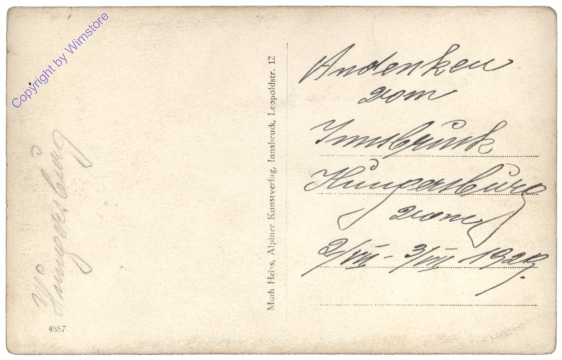 Copyright by Wimstore
Hungerburg
4887
Math Heiss, Alpiner Kunstverlag, Innsbruck, Leopoldstr. 12
Andenken
vom
Innsbruck
Hungerburg
vom
2/VII - 3/VII 1929.